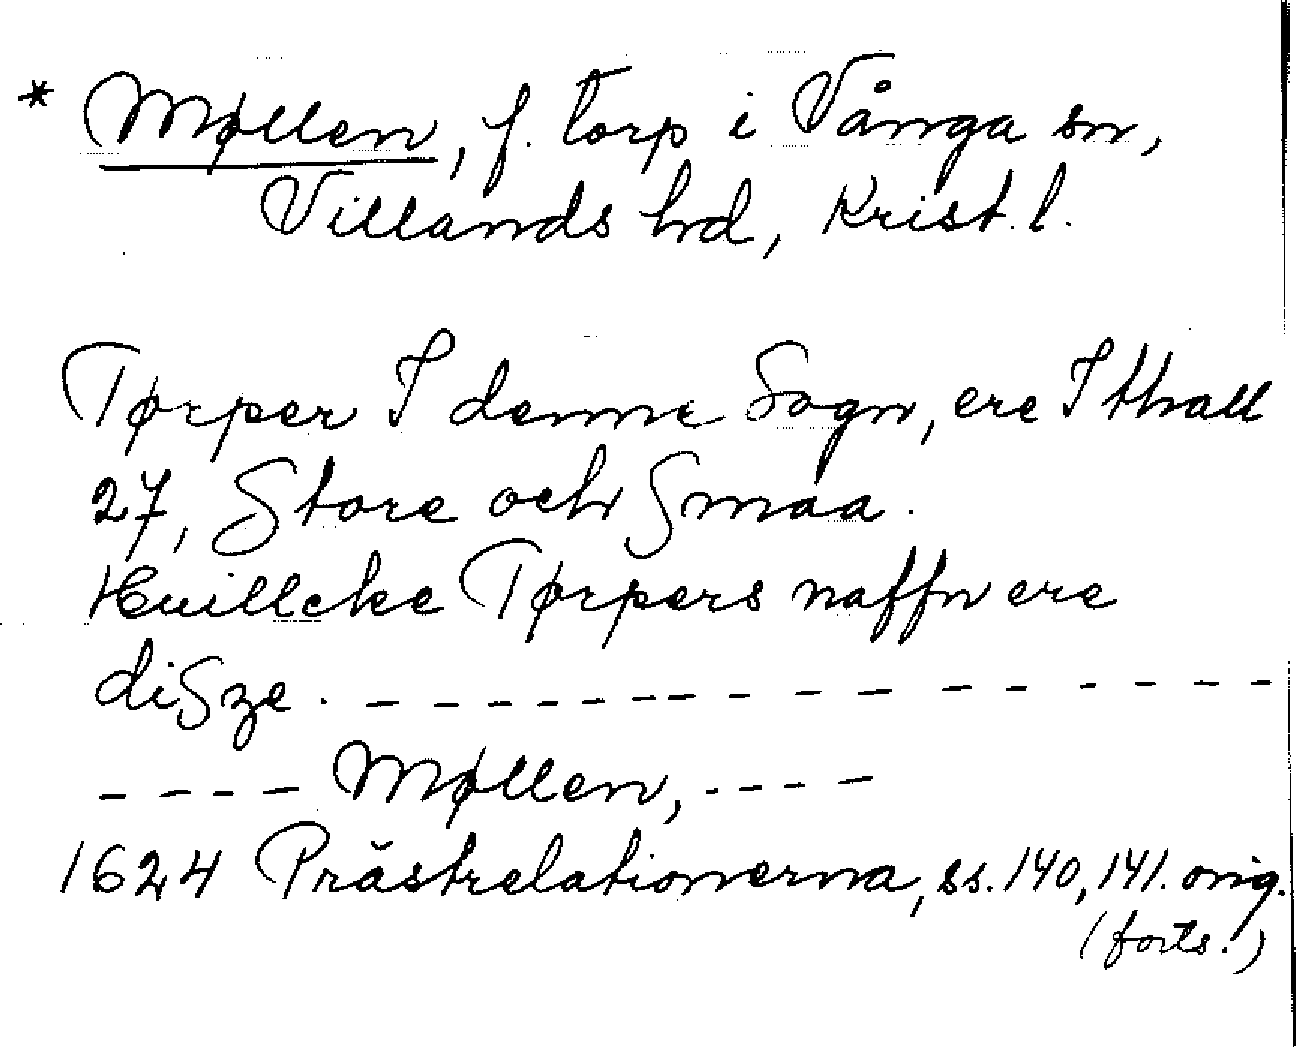 * Møllen, f. torp i Vånga sn,
Villands hd, Krist. l.
Tørper I denne Sogn, ere I thall
27, Store och Smaa.
Huillcke Tørpers naffn ere
diSze. - - - - - - - - - - - - - - -
- - - - Møllen, - - - -
1624 Prästrelationerna, ss. 140, 141. orig.
(forts.)